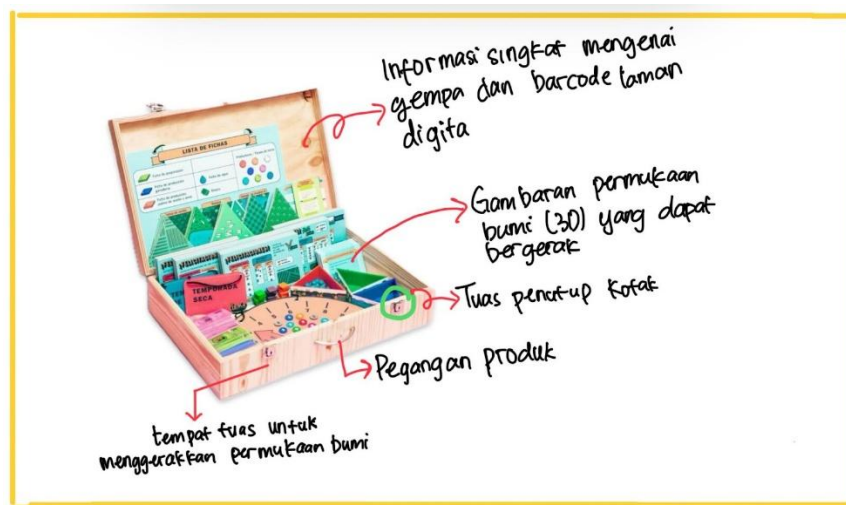 Informasi singkat mengenai
gempa dan barcode laman
digita
LISTA DE FICHAS
Gambaran permukaan
bumi (3D) yang dapat
bergerak
TEMPORADA
SECA
Tuas penutup kotak
Pegangan produk
tempat tuas untuk
menggerakkan permukaan bumi